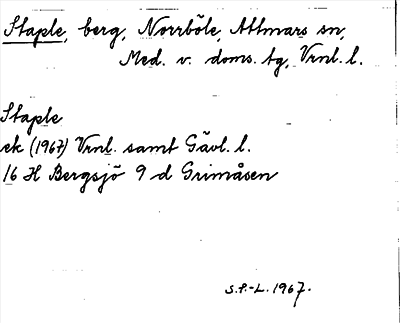 Staple, berg, Norrböle, Attmars sn,
Med. v. doms. tg, Vrnl. l.
Staple
ek (1967) Vrnl. samt Gävl. l.
16 H Bergsjö 9 d Grimåsen
S.P.-L. 1967.